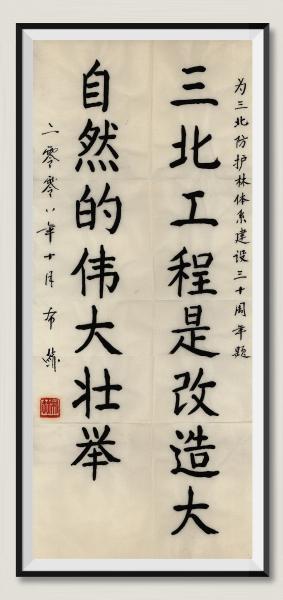 为三北防护林体系建设三十周年题
三北工程是改造大
自然的伟大壮举
二零零八年十月 布赫